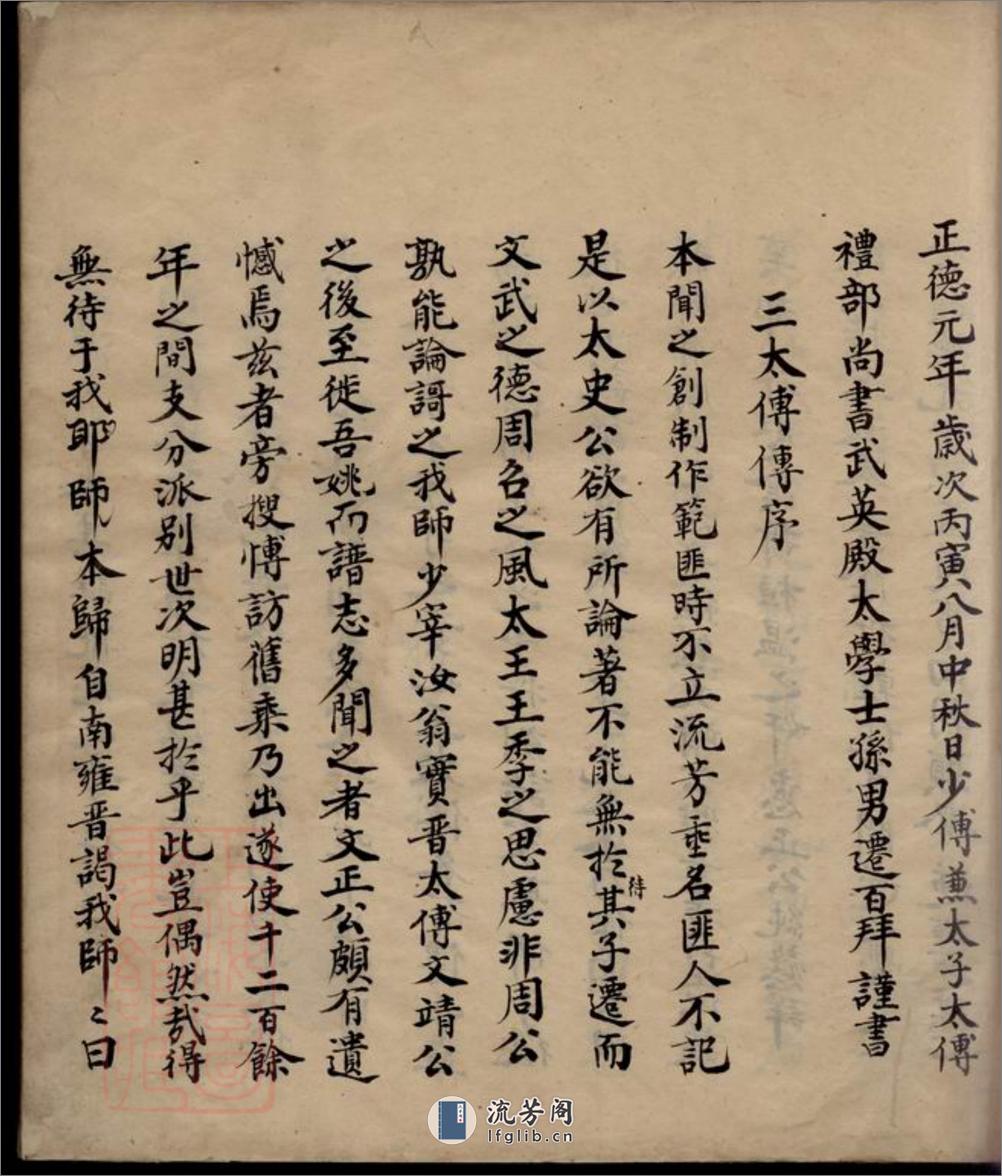 正德元年歲次丙寅八月中秋日少傅兼太子太傅
禮部尚書武英殿太學士孫男遷百拜謹書
三太傅傳序
本聞之創制作範匪時不立流芳垂名匪人不記
是以太史公欲有所論著不能無於待其子遷而
文武之德周召之風太王王季之思慮非周公
孰能論謌之我師少宰汝翁實晋太傅文靖公
之後至徙吾姚而譜志多聞之者文正公頗有遺
憾焉兹者旁搜愽訪舊乘乃出遂使千二百餘
年之間支分派别世次明甚於乎此豈偶然哉得
無待于我耶師本歸自南雍晋謁我師〻曰
流芳阁
lfglib.cn